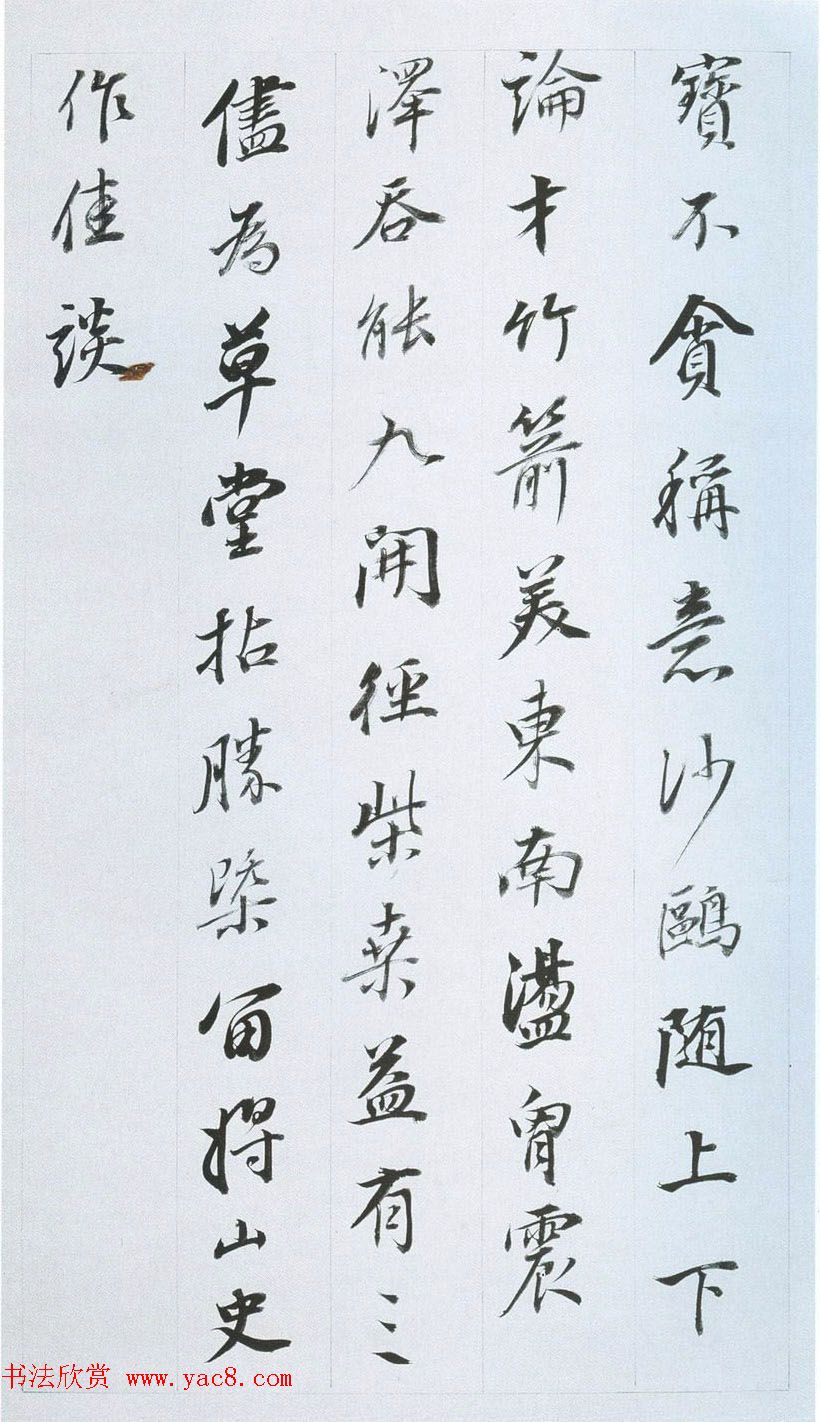 寶不貪稱意沙鷗随上下
論才竹箭美東南盪胷震
澤吞能九開徑柴桑益有三
儘為草堂拈勝槩留将山史
作佳談
书法欣赏 www.yac8.com